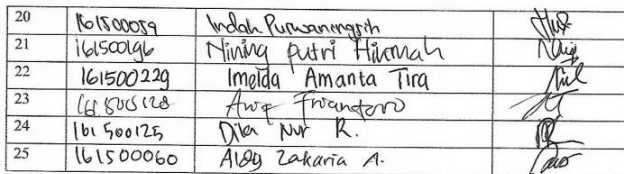 20 161500059 Indah Purwaningsih
21 161500196 Nining putri Hikmah
22 161500229 Imelda Amanta Tira
23
24 161500125 Dila Nur R.
25 161500060 Aldy Zakaria A.